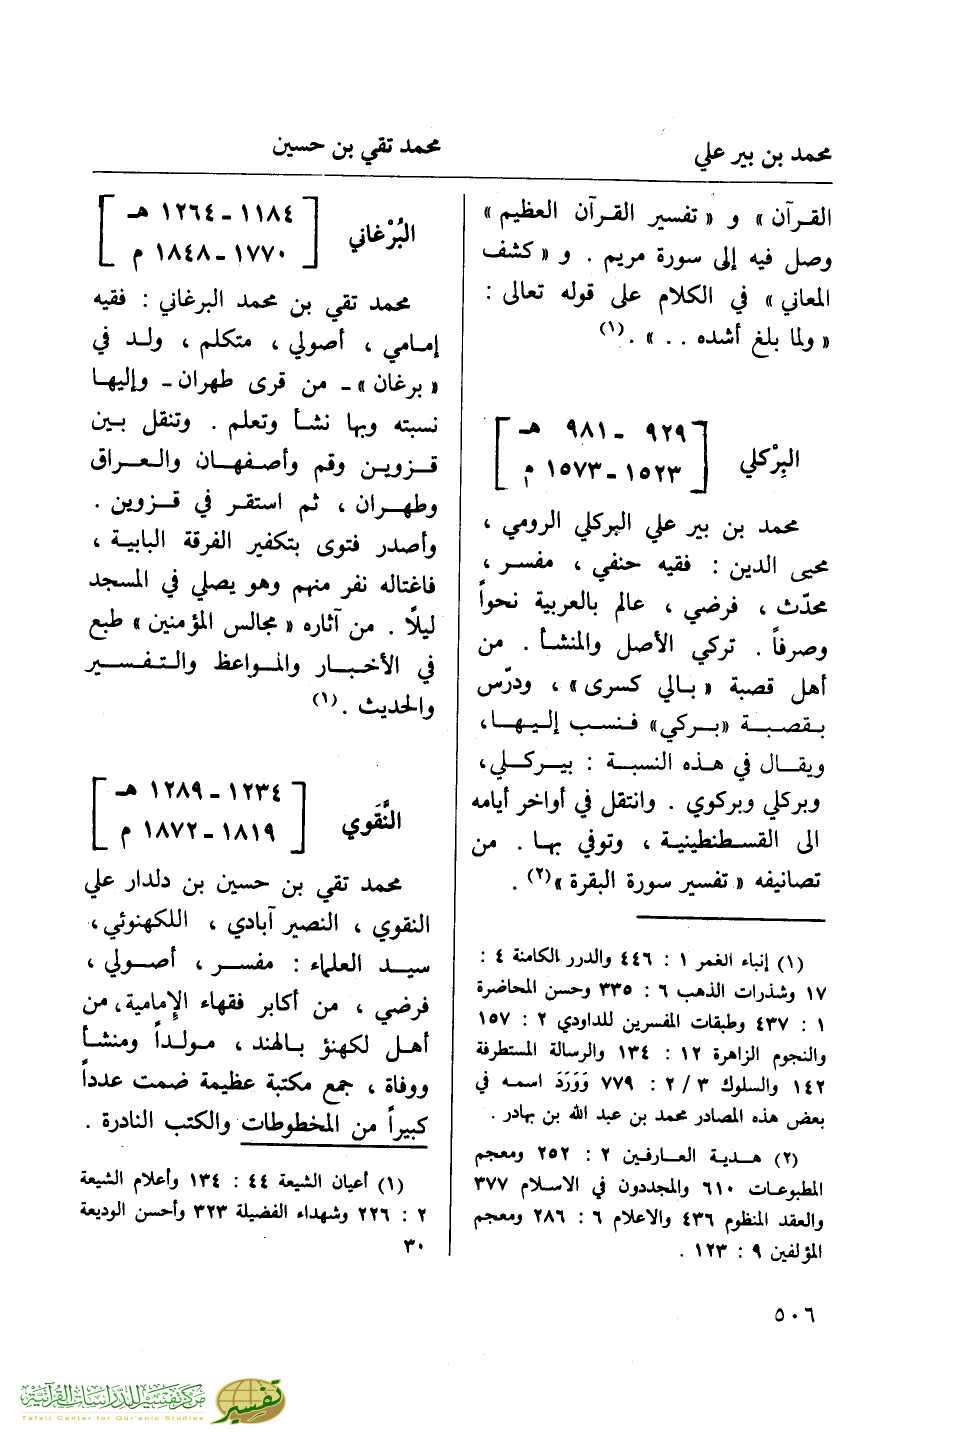 محمد بن بير علي
محمد تقي بن حسين
القرآن» و «تفسير القرآن العظيم»
وصل فيه إلى سورة مريم . و «كشف
المعاني» في الكلام على قوله تعالى :
«ولما بلغ أشده . . » .(١)
البِرْكلي
[٩٢٩ - ٩٨١ هـ
١٥٢٣ - ١٥٧٣ م]
محمد بن بير علي البركلي الرومي ،
محيي الدين : فقيه حنفي ، مفسر ،
محدّث ، فرضي ، عالم بالعربية نحواً
وصرفاً . تركي الأصل والمنشأ . من
أهل قصبة «بالي كسرى» ، ودرّس
بقصبة «بركي» فنسب إليها ،
ويقال في هذه النسبة : بيركلي ،
وبركلي وبركوي . وانتقل في أواخر أيامه
الى القسطنطينية ، وتوفي بها . من
تصانيفه «تفسير سورة البقرة»(٢) .
(١) إنباء الغمر ١ : ٤٤٦ والدرر الكامنة ٤ :
١٧ وشذرات الذهب ٦ : ٣٣٥ وحسن المحاضرة
١ : ٤٣٧ وطبقات المفسرين للداودي ٢ : ١٥٧
والنجوم الزاهرة ١٢ : ١٣٤ والرسالة المستطرفة
١٤٢ والسلوك ٣ / ٢ : ٧٧٩ وَوَرَدَ اسمه في
بعض هذه المصادر محمد بن عبد الله بن بهادر .
(٢) هدية العارفين ٢ : ٢٥٢ ومعجم
المطبوعات ٦١٠ والمجددون في الاسلام ٣٧٧
والعقد المنظوم ٤٣٦ والاعلام ٦ : ٢٨٦ ومعجم
المؤلفين ٩ : ١٢٣ .
البُرْغاني
[١١٨٤ - ١٢٦٤ هـ
١٧٧٠ - ١٨٤٨ م]
محمد تقي بن محمد البرغاني : فقيه
إمامي ، أصولي ، متكلم ، ولد في
«برغان» - من قرى طهران - وإليها
نسبته وبها نشأ وتعلم . وتنقل بين
قزوين وقم وأصفهان والعراق
وطهران ، ثم استقر في قزوين .
وأصدر فتوى بتكفير الفرقة البابية ،
فاغتاله نفر منهم وهو يصلي في المسجد
ليلًا . من آثاره «مجالس المؤمنين» طبع
في الأخبار والمواعظ والتفسير
والحديث .(١)
النَّقَوي
[١٢٣٤ - ١٢٨٩ هـ
١٨١٩ - ١٨٧٢ م]
محمد تقي بن حسين بن دلدار علي
النقوي ، النصير آبادي ، اللكهنوئي ،
سيد العلماء : مفسر ، أصولي ،
فرضي ، من أكابر فقهاء الإمامية ، من
أهل لكهنؤ بالهند ، مولداً ومنشأ
ووفاة ، جمع مكتبة عظيمة ضمت عدداً
كبيراً من المخطوطات والكتب النادرة .
(١) أعيان الشيعة ٤٤ : ١٣٤ وأعلام الشيعة
٢ : ٢٢٦ وشهداء الفضيلة ٣٢٣ وأحسن الوديعة
٣٠
٥٠٦
مركز تفسير للدراسات القرآنية
Tafsir Center for Qur'anic Studies
تفسير